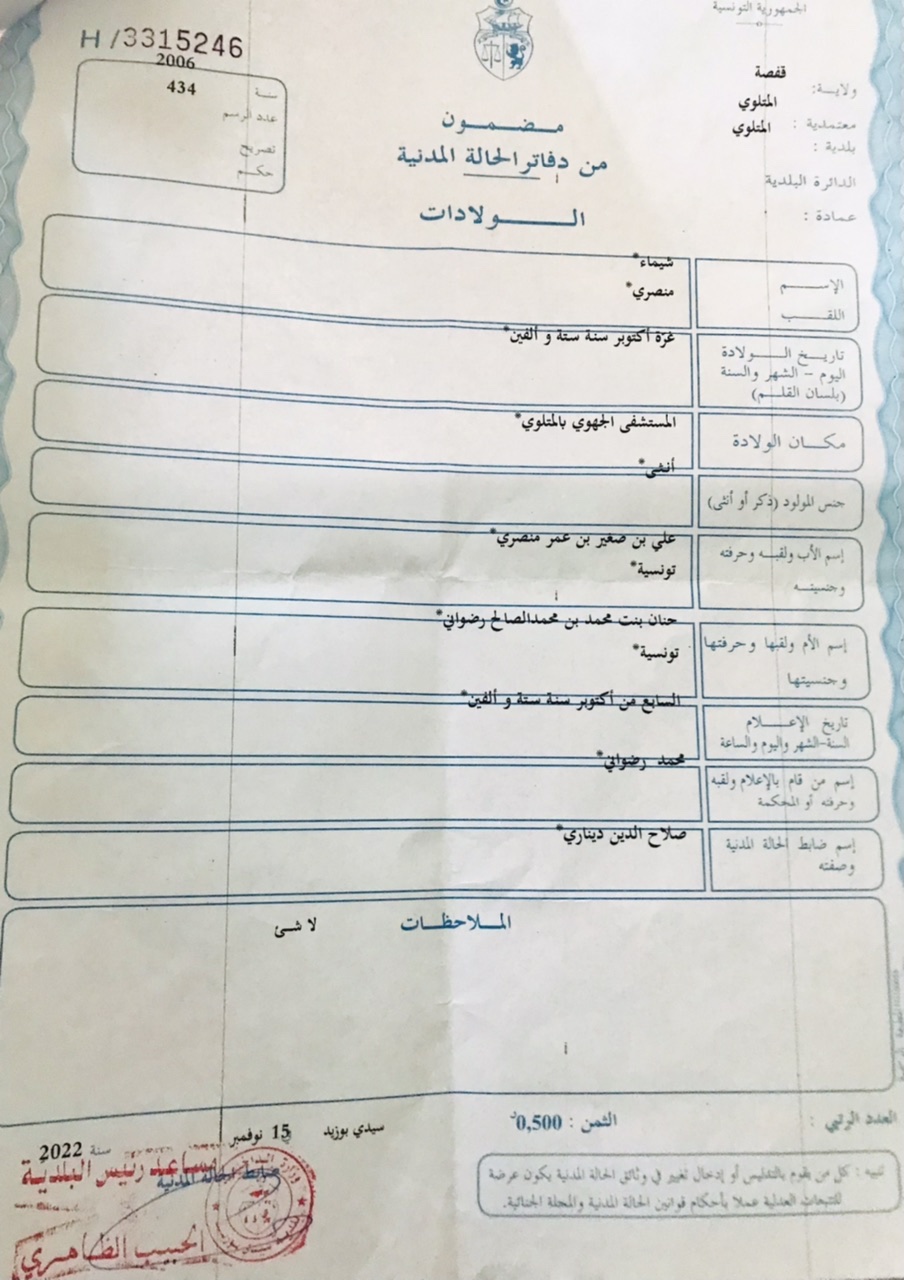 الجمهورية التونسية
H/3315246
ولاية: قفصة
معتمدية : المتلوي
بلدية : المتلوي
الدائرة البلدية
عمادة :
سنة 2006
عدد الرسم 434
تصريح
حكم
مضمون
من دفاتر الحالة المدنية
الولادات
الإسم شيماء*
اللقب منصري*
تاريخ الولادة
اليوم - الشهر والسنة
(بلسان القلم)
غرة أكتوبر سنة ستة و ألفين*
مكان الولادة المستشفى الجهوي بالمتلوي*
جنس المولود (ذكر أو أنثى) أنثى*
إسم الأب ولقبه وحرفته
وجنسيته
علي بن صغير بن عمر منصري*
تونسية*
إسم الأم ولقبها وحرفتها
وجنسيتها
حنان بنت محمد بن محمدالصالح رضواني*
تونسية*
تاريخ الإعلام
السنة-الشهر واليوم والساعة
السابع من أكتوبر سنة ستة و ألفين*
إسم من قام بالإعلام ولقبه
وحرفته أو المحكمة
محمد رضواني*
إسم ضابط الحالة المدنية
وصفته
صلاح الدين ديناري*
الملاحظات
لا شئ
العدد الرتبي :
الثمن : 0,500د
سيدي بوزيد 15 نوفمبر سنة 2022
ضابط الحالة المدنية
مساعد رئيس البلدية
الحبيب الظاهري
تنبيه : كل من يقوم بالتدليس أو إدخال تغيير في وثائق الحالة المدنية يكون عرضة
للتتبعات العدلية عملا بأحكام قوانين الحالة المدنية والمجلة الجنائية.